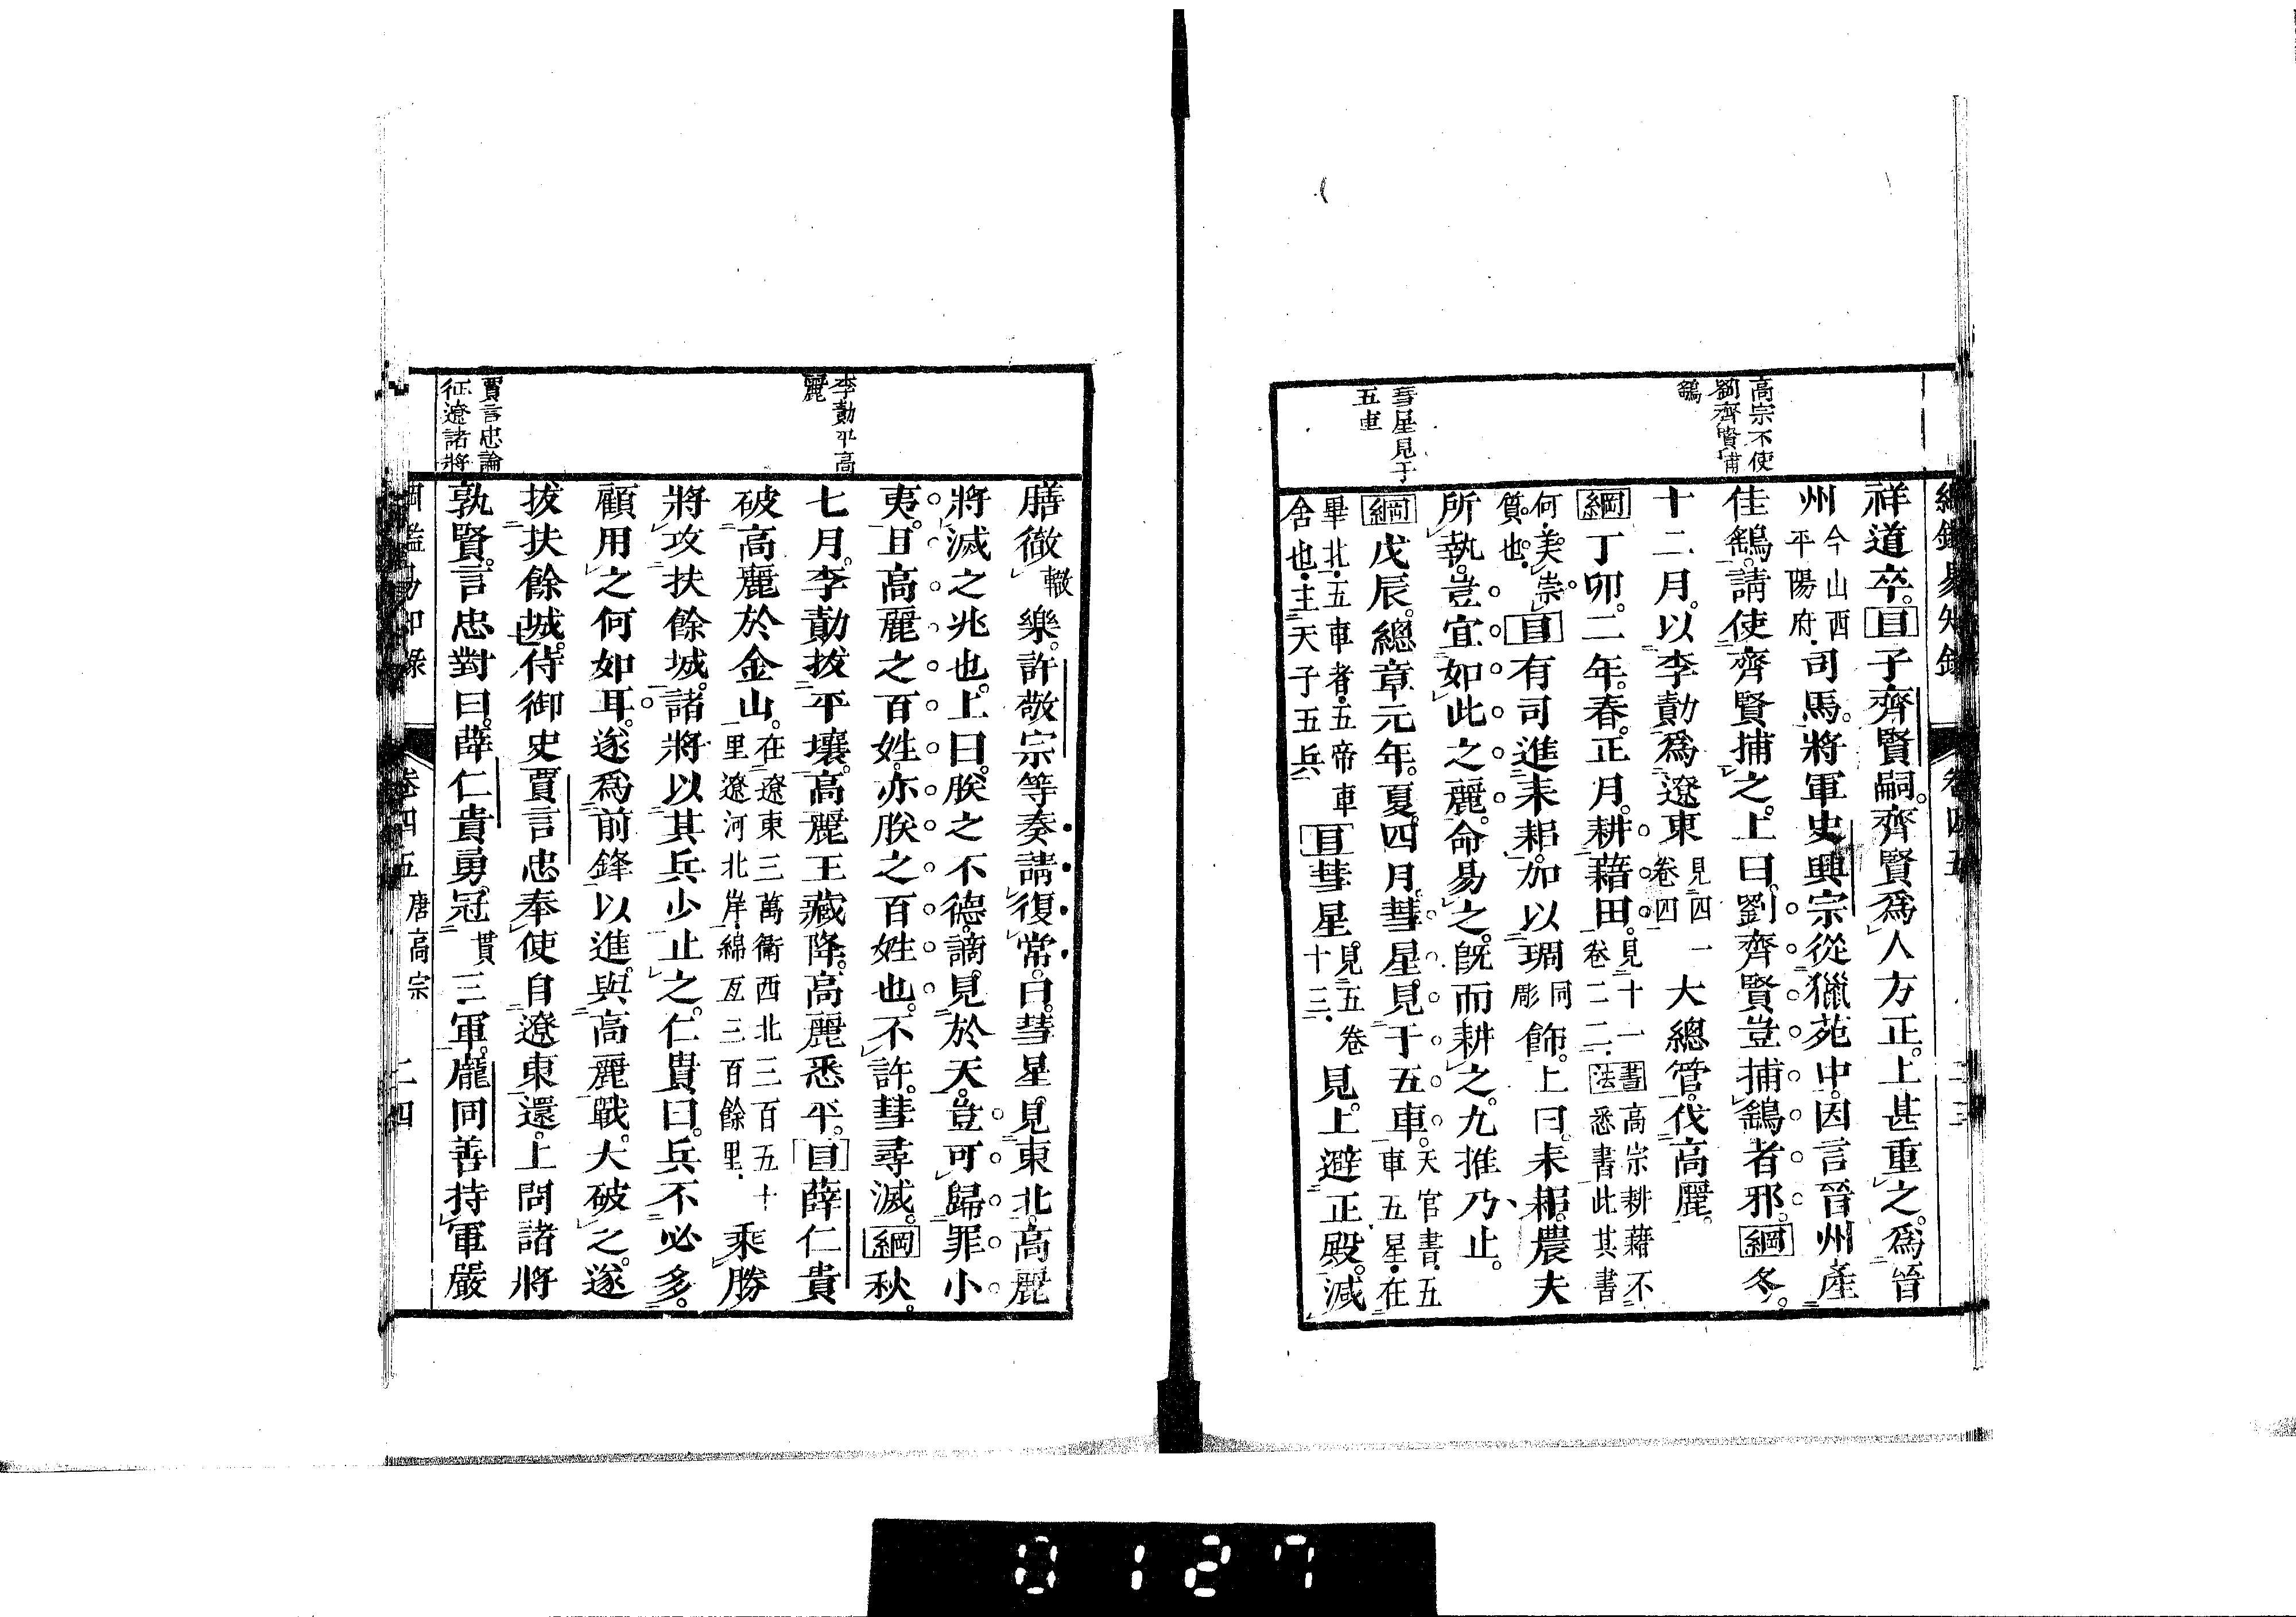 高宗不使
劉齊賢捕
鷂
彗星見于
五車
祥道卒。目子齊賢嗣。齊賢爲人方正。上甚重之。爲晉
州今山西平陽府。司馬。將軍史興宗從獵苑中。因言晉州產
佳鷂。請使齊賢捕之。上曰。劉齊賢豈捕鷂者邪。綱冬。
十二月。以李勣爲遼東見四一卷四大總管。伐高麗。
綱丁卯。二年。春。正月。耕藉田。見十一卷二二。書法高宗耕藉不悉書此其書
何。美崇質也。目有司進耒耜。加以琱同彫飾。上曰。耒耜。農夫
所執。豈宜如此之麗。命易之。旣而耕之。九推乃止。
綱戊辰。總章元年。夏。四月。彗星見于五車。天官書。五車五星。在
畢北。五車者。五帝車舍也。主天子五兵目彗星。見五卷十三。見。上避正殿。減
卷四五
李勣平高
麗
賈言忠論
征遼諸將
膳徹轍樂。許敬宗等奏請復常。曰。彗星見東北。高麗
將滅之兆也。上曰。朕之不德。謫見於天。豈可歸罪小
夷。且高麗之百姓。亦朕之百姓也。不許。彗尋滅。綱秋。
七月。李勣拔平壤。高麗王藏降。高麗悉平。目薛仁貴
破高麗於金山。在遼東三萬衞西北三百五十里遼河北岸。綿亙三百餘里。乘勝
將攻扶餘城。諸將以其兵少止之。仁貴曰。兵不必多。
顧用之何如耳。遂爲前鋒以進。與高麗戰。大破之。遂
拔扶餘城。侍御史賈言忠奉使自遼東還。上問諸將
孰賢。言忠對曰。薛仁貴勇冠貫三軍。龐同善持軍嚴
卷四五 唐高宗 二四
0127